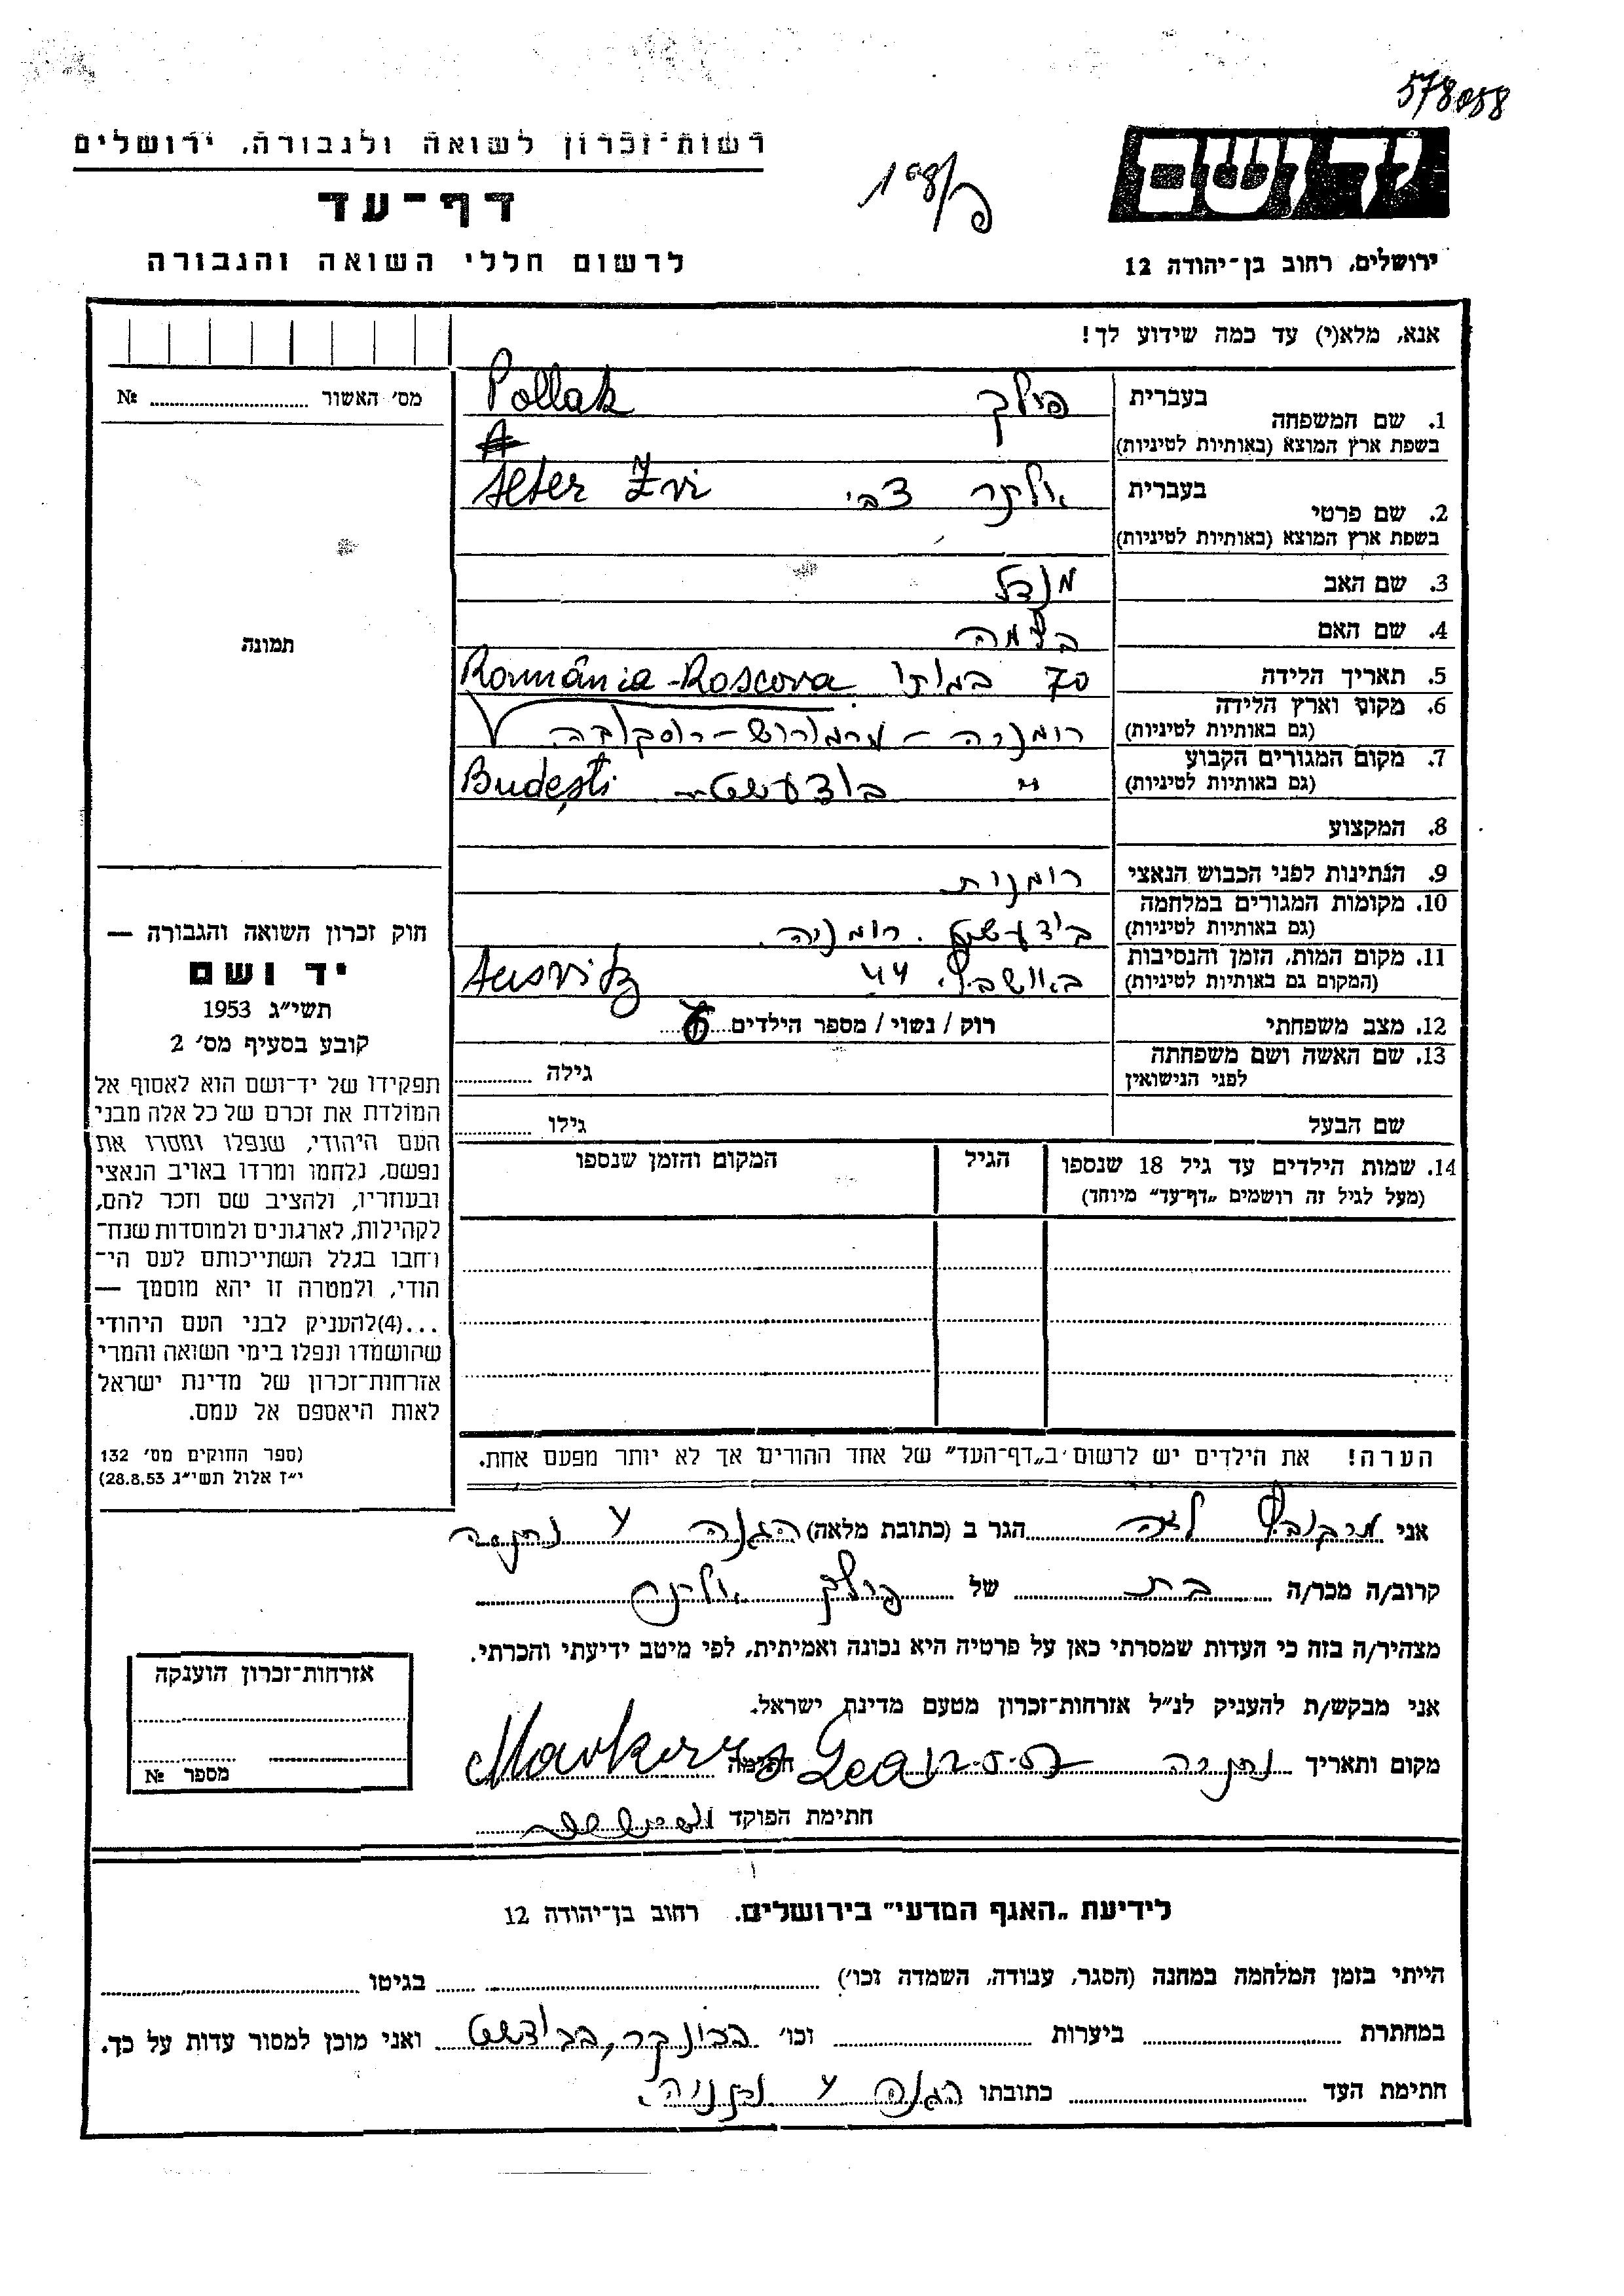 578058
רשות־זכרון לשואה ולגבורה, ירושלים
יד ושם
דף־עד
לרשום חללי השואה והגבורה
ירושלים, רחוב בן־יהודה 12
אנא, מלא(י) עד כמה שידוע לך!
מס׳ האשור № 
1. שם המשפחה בעברית פולק Pollak
בשפת ארץ המוצא (באותיות לטיניות)
2. שם פרטי בעברית אלתר צבי Alter Zvi
בשפת ארץ המוצא (באותיות לטיניות)
3. שם האב מנדל
4. שם האם
תמונה
5. תאריך הלידה 70 במותו România-Roscova
6. מקום וארץ הלידה רומניה – מרמורש – רוסקובה
(גם באותיות לטיניות)
7. מקום המגורים הקבוע " בודעשט Budești
(גם באותיות לטיניות)
8. המקצוע
9. הנתינות לפני הכבוש הנאצי רומנית
10. מקומות המגורים במלחמה בודעשט. רומניה.
(גם באותיות לטיניות)
11. מקום המות, הזמן והנסיבות באושביץ 44 Ausvitz
(המקום גם באותיות לטיניות)
12. מצב משפחתי רוק / נשוי / מספר הילדים
13. שם האשה ושם משפחתה גילה
לפני הנישואין
שם הבעל גילו
14. שמות הילדים עד גיל 18 שנספו הגיל המקום והזמן שנספו
(מעל לגיל זה רושמים „דף־עד״ מיוחד)
חוק זכרון השואה והגבורה —
יד ושם
תשי״ג 1953
קובע בסעיף מס׳ 2
תפקידו של יד־ושם הוא לאסוף אל
המולדת את זכרם של כל אלה מבני
העם היהודי, שנפלו ומסרו את
נפשם, נלחמו ומרדו באויב הנאצי
ובעוזריו, ולהציב שם וזכר להם,
לקהילות, לארגונים ולמוסדות שנח־
רבו בגלל השתייכותם לעם הי־
הודי, ולמטרה זו יהא מוסמך —
...(4)להעניק לבני העם היהודי
שהושמדו ונפלו בימי השואה והמרי
אזרחות־זכרון של מדינת ישראל
לאות היאספם אל עמם.
(ספר החוקים מס׳ 132
י״ז אלול תשי״ג 28.8.53)
הערה! את הילדים יש לרשום ב„דף־העד״ של אחד ההורים אך לא יותר מפעם אחת.
אני מרקוביץ לאה הגר ב (כתובת מלאה) הגנה 4 נתניה
קרוב/ה מכר/ה בת של פולק אלתר
מצהיר/ה בזה כי העדות שמסרתי כאן על פרטיה היא נכונה ואמיתית, לפי מיטב ידיעתי והכרתי.
אני מבקש/ת להעניק לנ״ל אזרחות־זכרון מטעם מדינת ישראל.
מקום ותאריך נתניה חתימה Lea
חתימת הפוקד
אזרחות־זכרון הוענקה
מספר №
לידיעת „האגף המדעי״ בירושלים, רחוב בן־יהודה 12
הייתי בזמן המלחמה במחנה (הסגר, עבודה, השמדה וכו׳) בגיטו
במחתרת ביערות וכו׳ בבונקר, ואני מוכן למסור עדות על כך.
חתימת העד כתובתו הגנה 4 נתניה.